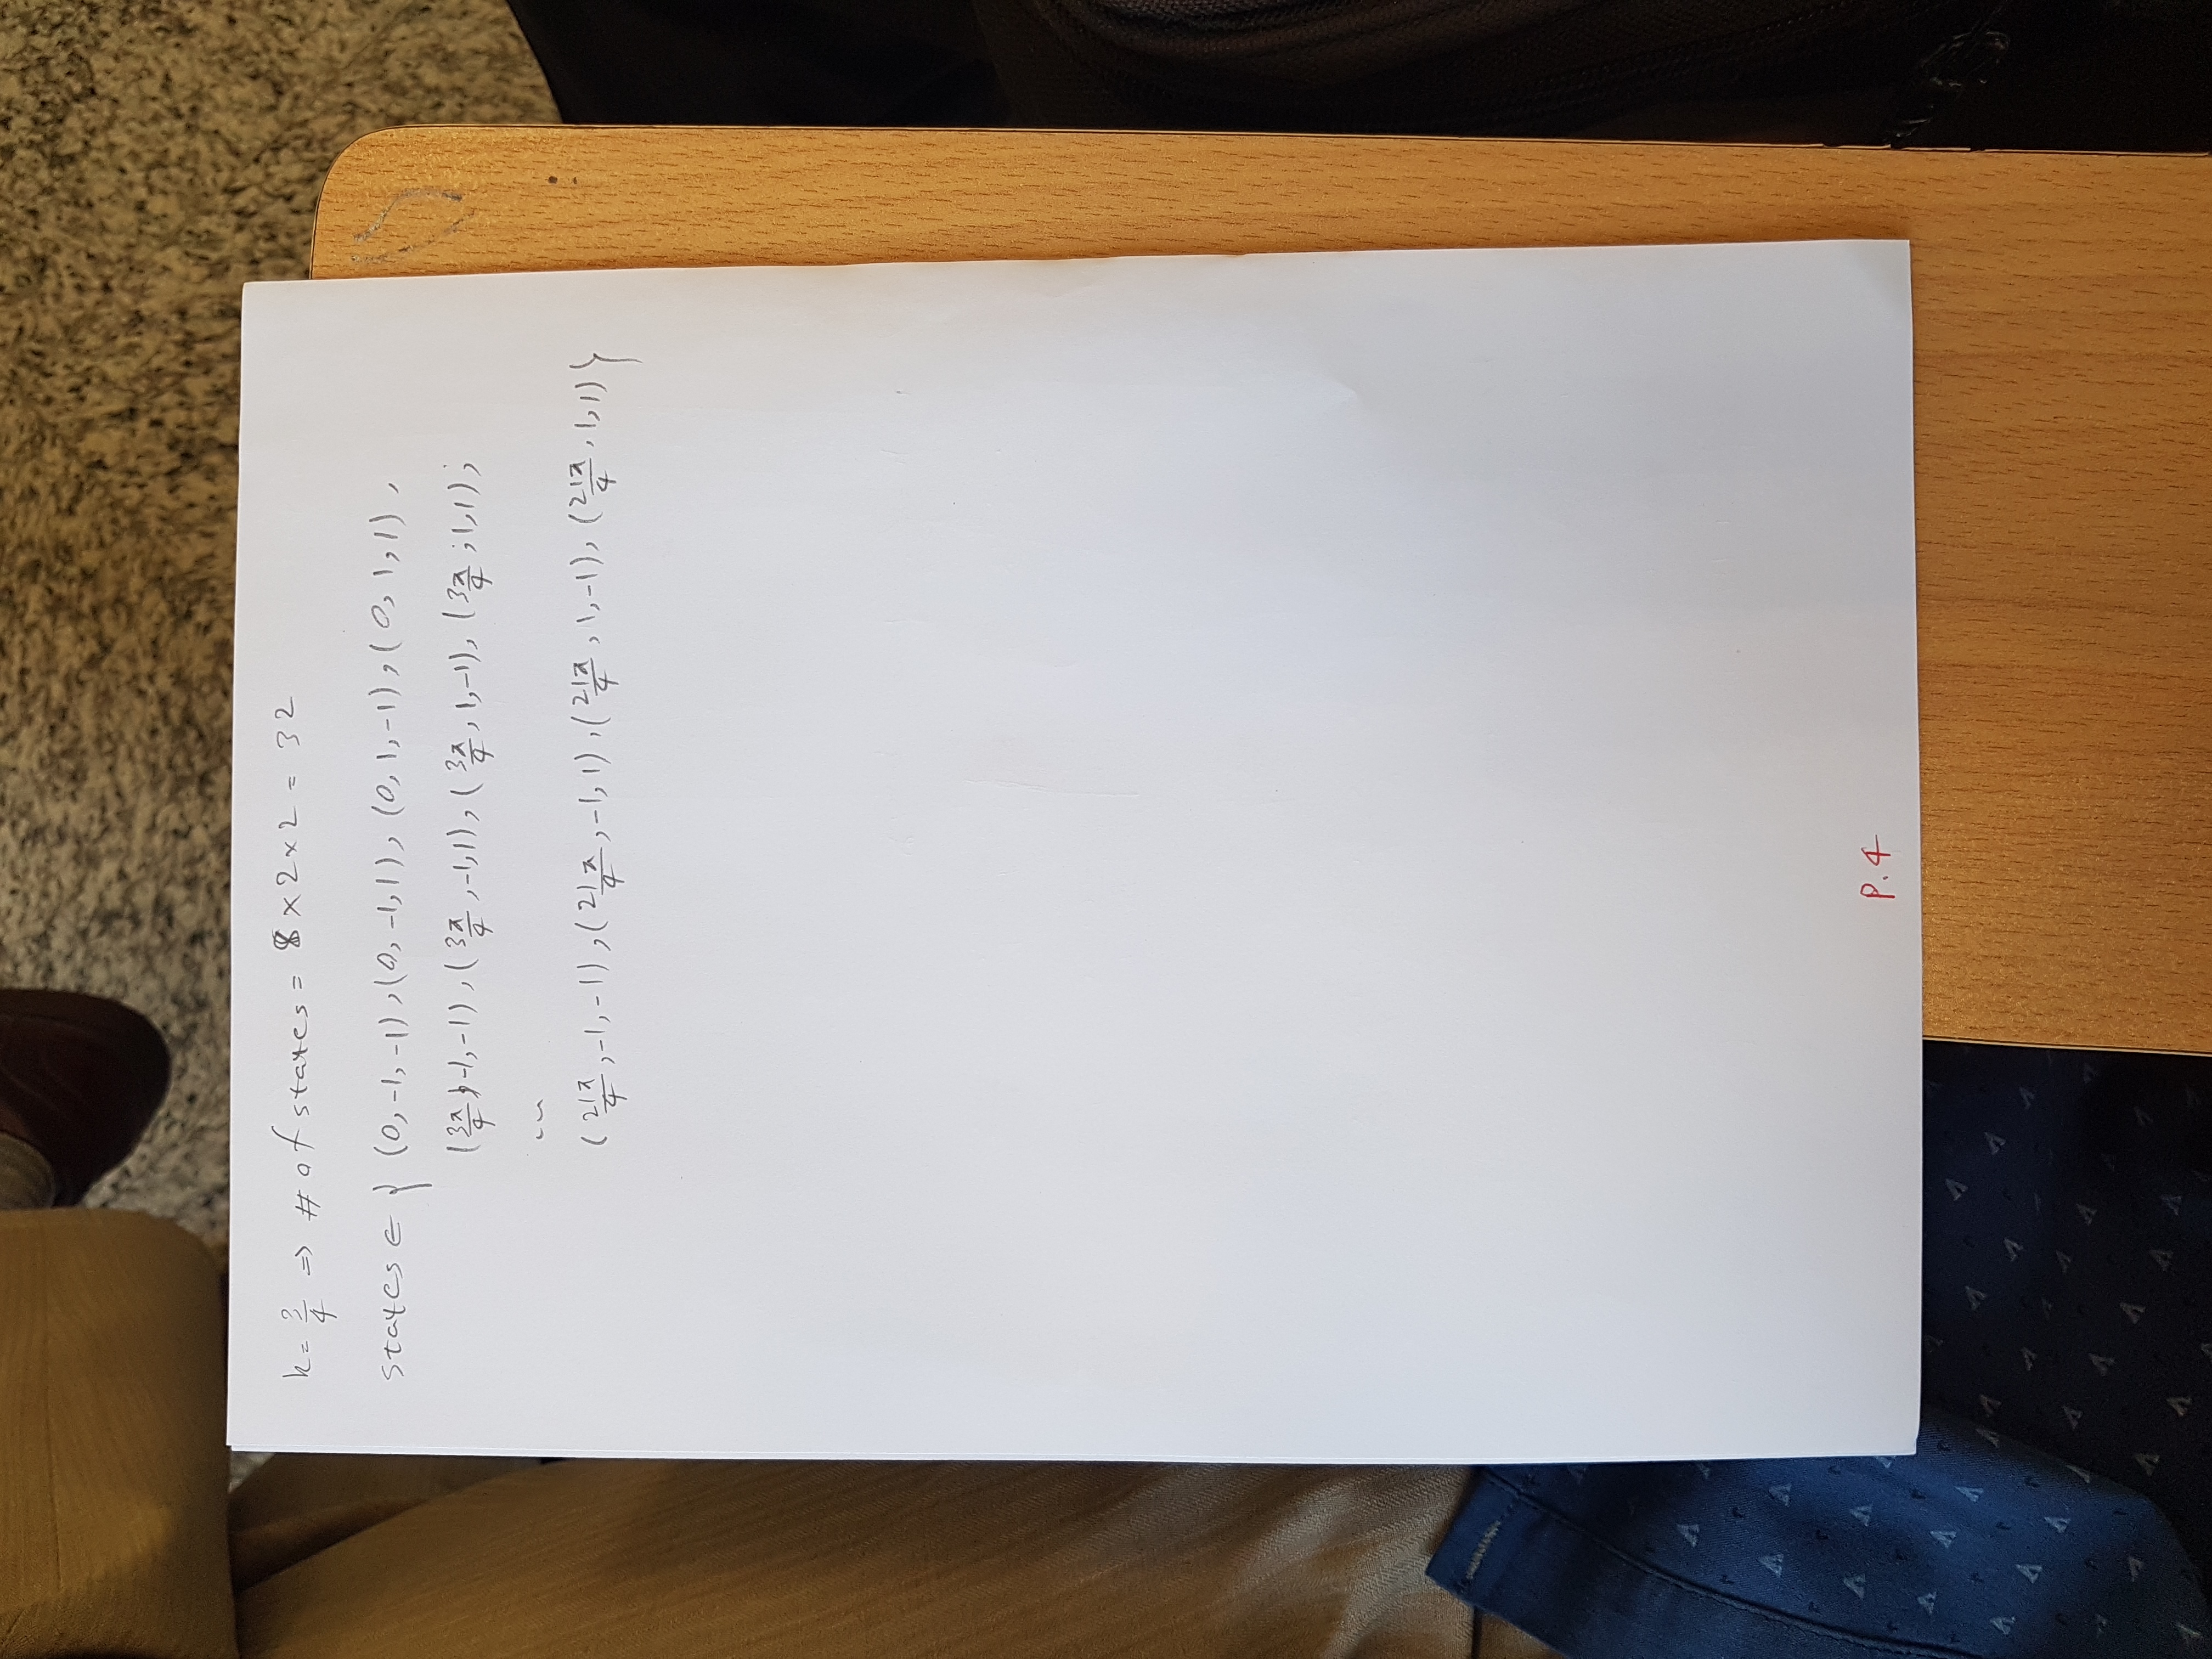 h = 3/4 ⇒ # of states = 8 × 2 × 2 = 32
states ∈ { (0, -1, -1), (0, -1, 1), (0, 1, -1), (0, 1, 1),
(3π/4, -1, -1), (3π/4, -1, 1), (3π/4, 1, -1), (3π/4, 1, 1),
...
(21π/4, -1, -1), (21π/4, -1, 1), (21π/4, 1, -1), (21π/4, 1, 1) }
P. 4